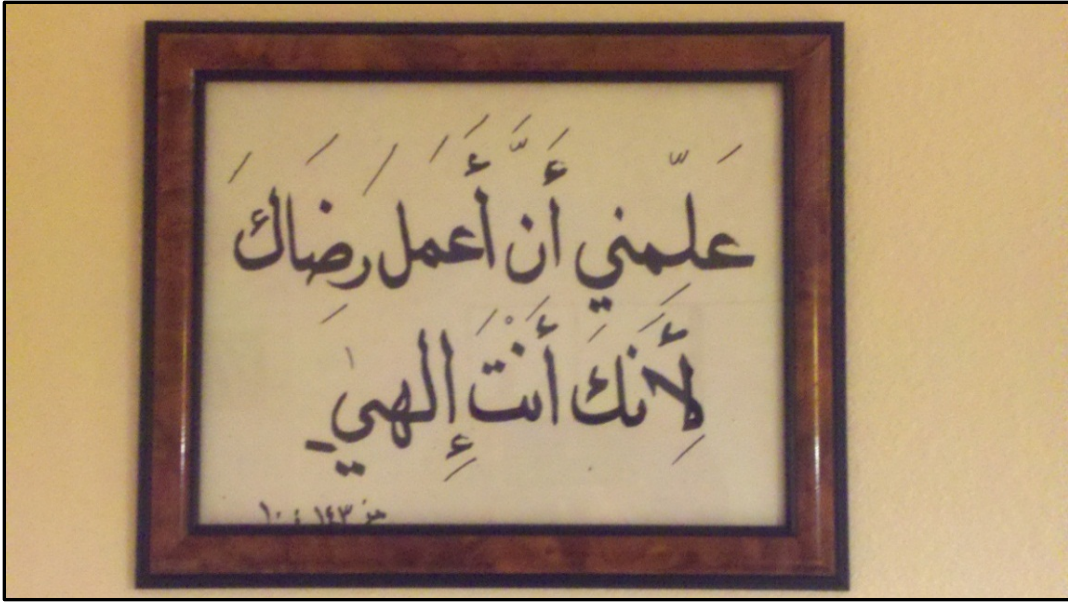 عَلِّمني أَنَّ أَعمَل رَضِاكَ
لِأَنَكَ أَنْتَ إِلهي
مز ١٤٣ : ١٠